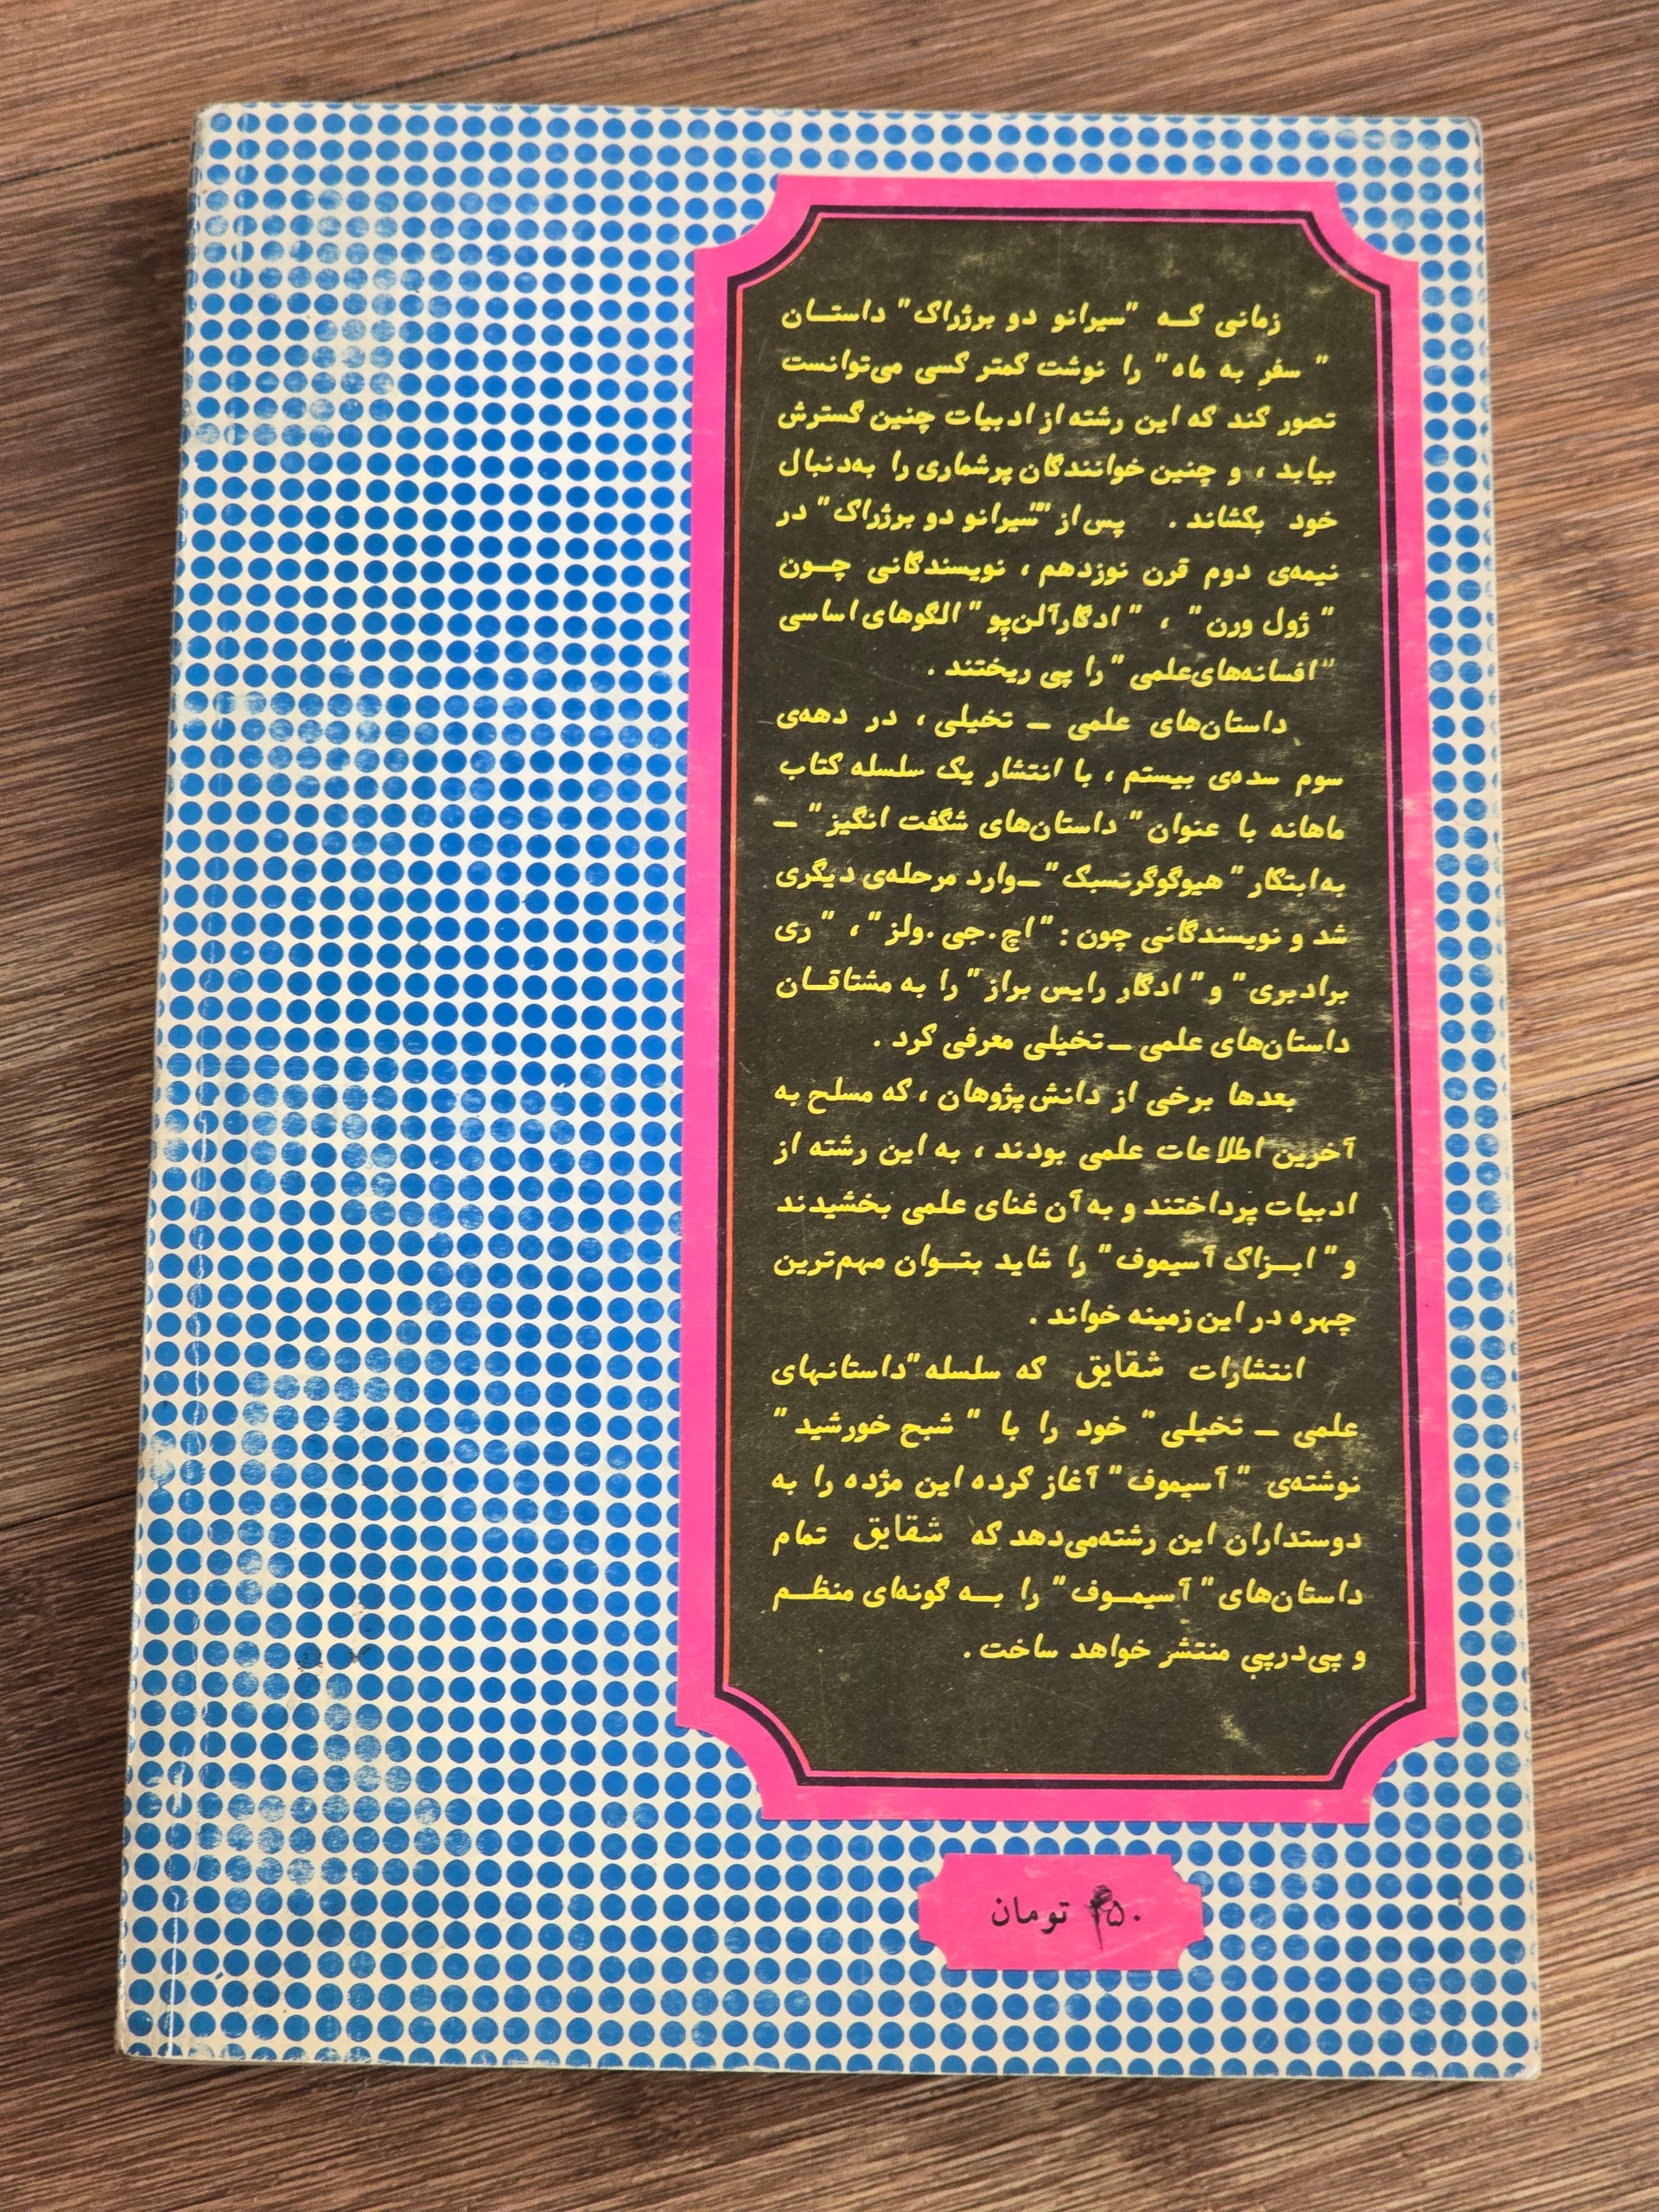 زمانی که "سیرانو دو برژراک" داستان
" سفر به ماه" را نوشت کمتر کسی می‌توانست
تصور کند که این رشته از ادبیات چنین گسترش
بیابد ، و چنین خوانندگان پرشماری را به‌دنبال
خود بکشاند . پس از "سیرانو دو برژراک" در
نیمه‌ی دوم قرن نوزدهم ، نویسندگانی چون
" ژول ورن" ، " ادگارآلن‌پو " الگوهای اساسی
"افسانه‌های‌علمی" را پی ریختند .
داستان‌های علمی ـ تخیلی ، در دهه‌ی
سوم سده‌ی بیستم ، با انتشار یک سلسله کتاب
ماهانه با عنوان " داستان‌های شگفت انگیز" ـ
به‌ابتکار " هیوگوگرنسبک" ـ وارد مرحله‌ی دیگری
شد و نویسندگانی چون : " اچ . جی . ولز " ، " ری
برادبری" و " ادگار رایس براز " را به مشتاقان
داستان‌های علمی ـ تخیلی معرفی کرد .
بعدها برخی از دانش‌پژوهان ، که مسلح به
آخرین اطلاعات علمی بودند ، به این رشته از
ادبیات پرداختند و به آن غنای علمی بخشیدند
و " ایزاک آسیموف" را شاید بتوان مهم‌ترین
چهره در این زمینه خواند .
انتشارات شقایق که سلسله "داستانهای
علمی ـ تخیلی" خود را با " شبح خورشید "
نوشته‌ی " آسیموف" آغاز کرده این مژده را به
دوستداران این رشته‌می‌دهد که شقایق تمام
داستان‌های " آسیموف" را به گونه‌ای منظم
و پی‌درپی منتشر خواهد ساخت .
۴۵۰ تومان